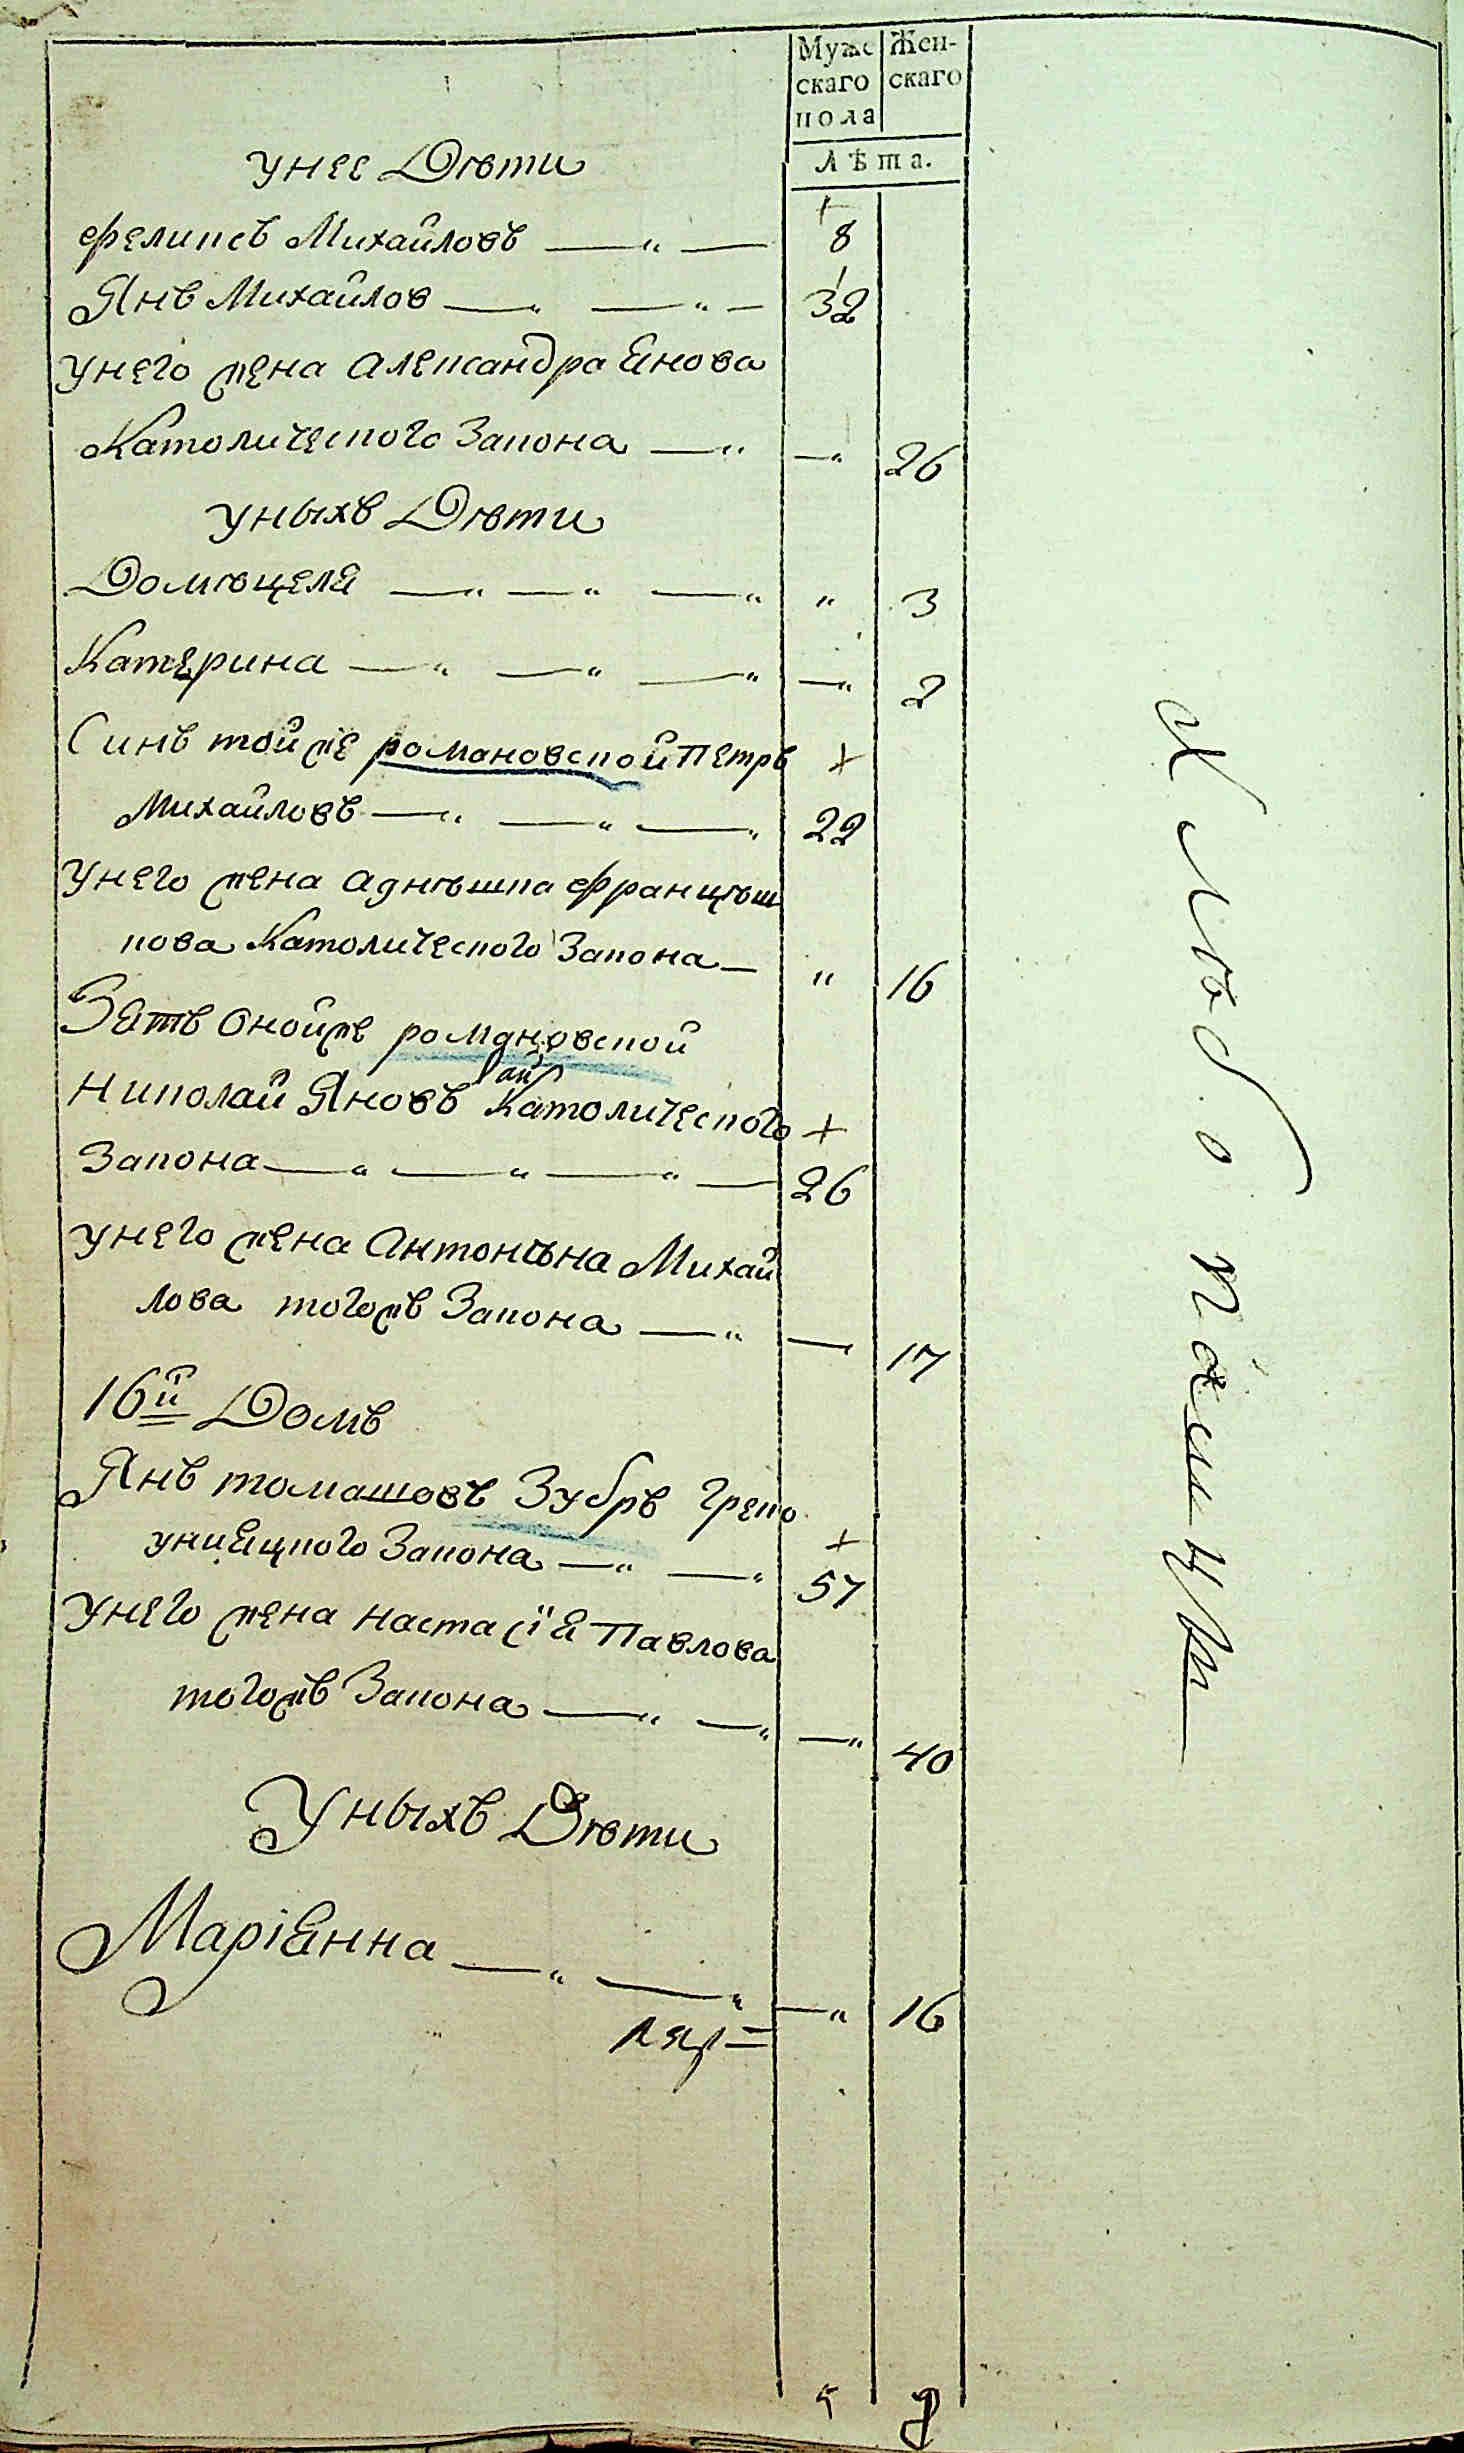 Мужс Жен-
скаго скаго
пола
Лѣта.
унее Дѣти
Фелипсъ Михайловъ — „ — 8
Янъ Михайлов — „ — „ — 32
унего жена Александра Янова
Католического Закона — „ — „ 26
уныхъ Дѣти
Домѣцеля — „ — „ — „ „ 3
Катерина — „ — „ — „ — „ 2
Синъ тойже романовской Петръ +
Михайловъ — „ — „ — „ 22
унего жена Агнѣшка Францѣш
кова Католического Закона — „ 16
Зять онойже романовской
Николай Яновъ Католического +
Закона — „ — „ — „ — 26
унего жена Антонѣна Михай
лова тогожъ Закона — „ — 17
16й Домъ
Янъ томашовъ Зубръ Греко
унияцкого Закона — „ — „ 57
унего жена настасія Павлова
тогожъ Закона — „ — „ — „ 40
Уныхъ Дѣти
Маріянна — „ — „ — „ 16